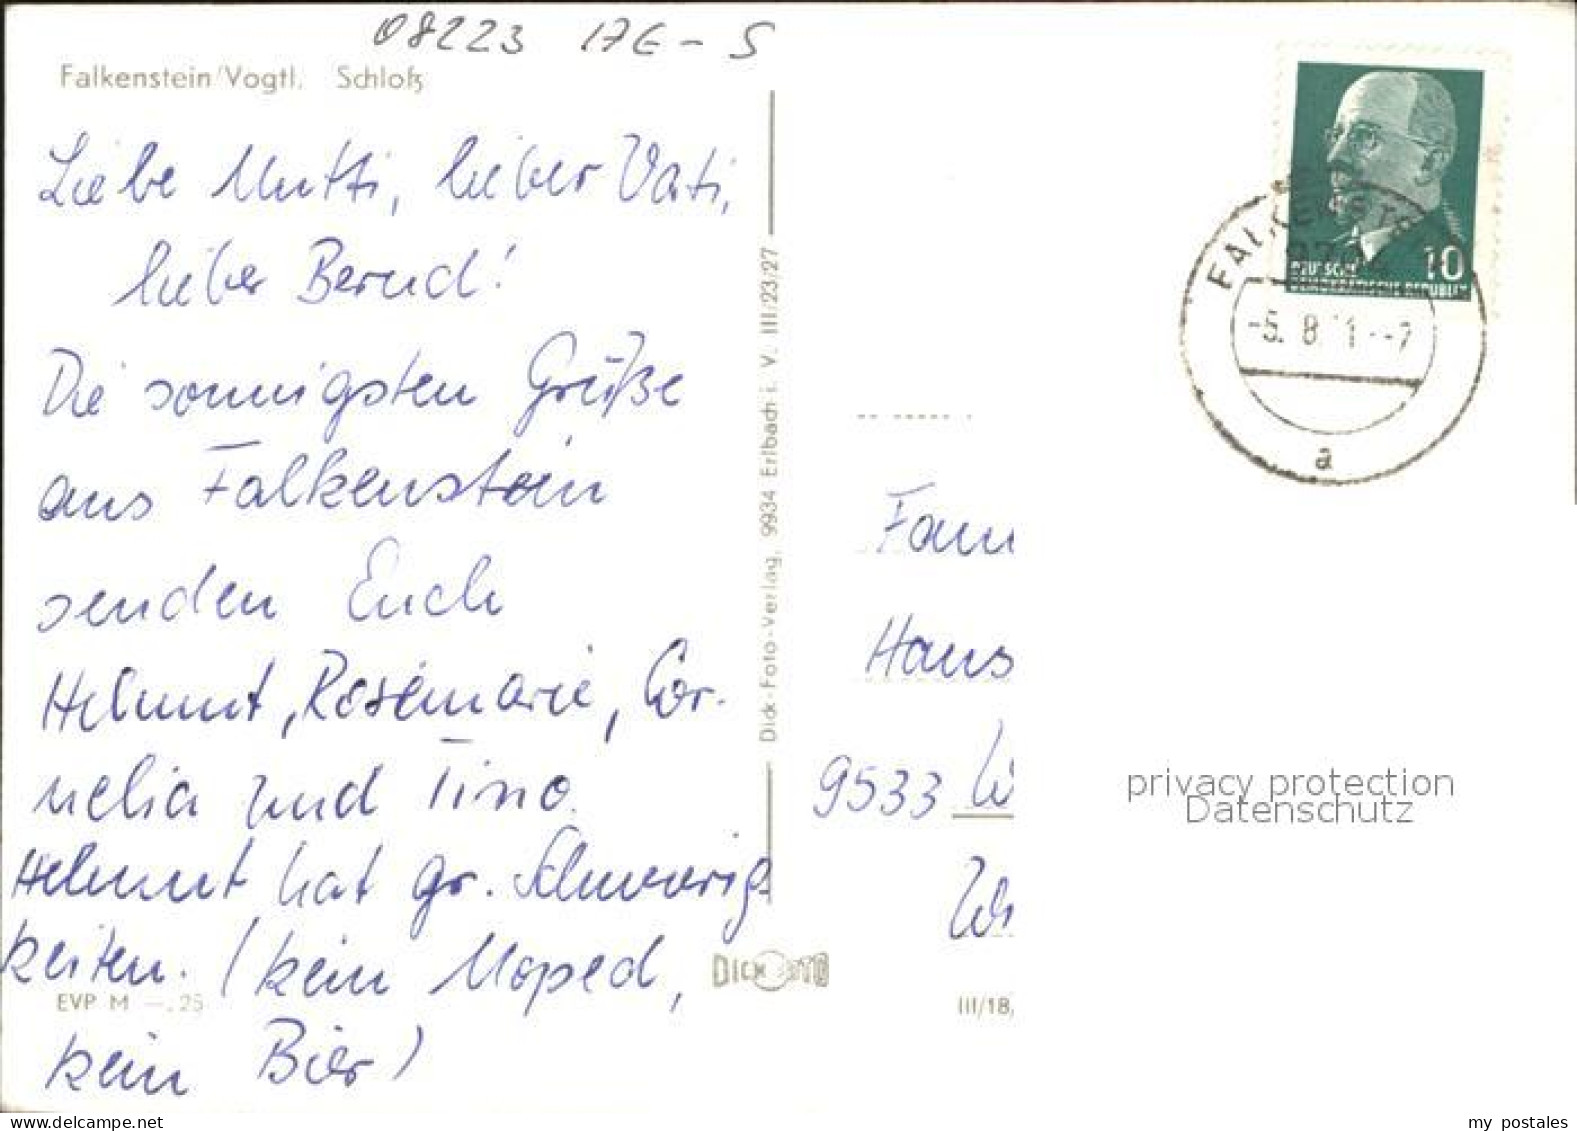 08223 17E - S
Falkenstein/Vogtl. Schloß
Liebe Mutti, lieber Vati,
lieber Bernd!
Die sonnigsten Grüße
aus Falkenstein
senden Euch
Helmut, Rosemarie, Cor-
nelia und Tino.
Helmut hat gr. Schwierig
keiten. (kein Moped,
kein Bier)
EVP M -.25
DICK FOTO
Dick-Foto-Verlag, 9934 Erlbach i. V. III/23/27
10
DEUTSCHE
DEMOKRATISCHE REPUBLIK
FALKENST
-5. 8
a
Fam
Haus
9533 W
III/18,
privacy protection
Datenschutz
my postales
www.delcampe.net